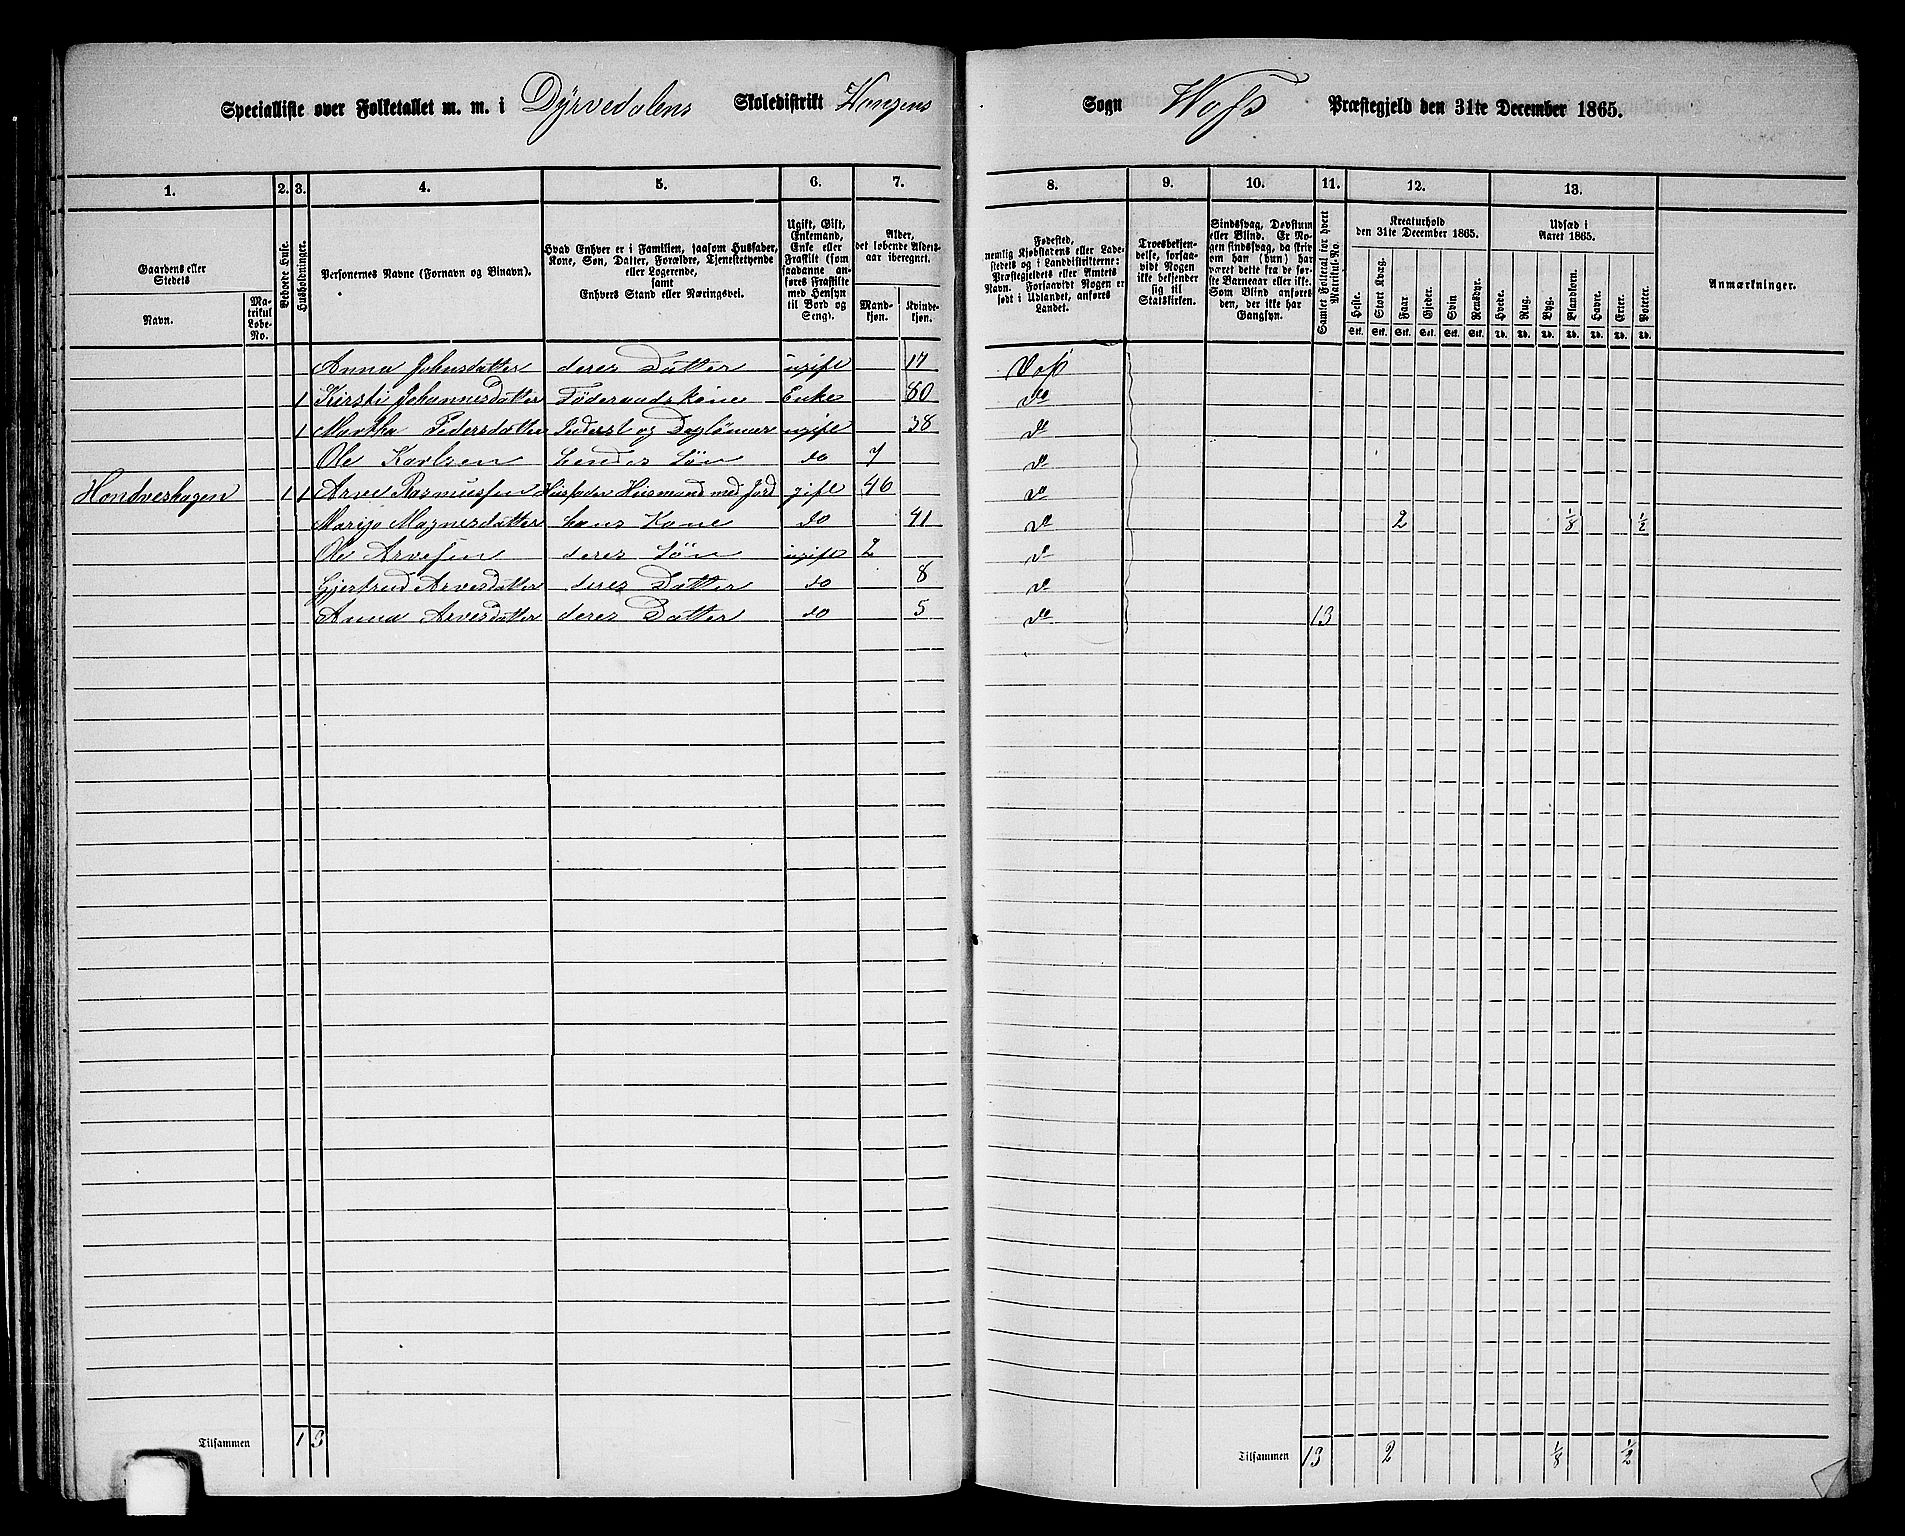 Specialliste over Folketallet m. m. i Dyrvedalens Skoledistrikt Vangens Sogn Woss Præstegjeld den 31te December 1865.
1. 2. 3. 4. 5. 6. 7. 8. 9. 10. 11. 12. 13.
Gaardens eller Stedets
Navn.
Matrikul Løbe-No.
Beboede Huse.
Husholdninger.
Personernes Navne (Fornavn og Binavn).
Hvad Enhver er i Familien, saasom Husfader, Kone, Søn, Datter, Forældre, Tjenestetyende eller Logerende, samt Enhvers Stand eller Næringsvei.
Ugift, Gift, Enkemand, Enke eller Fraskilt (som saadanne anføres Fraskilte med Hensyn til Bord og Seng).
Alder, det løbende Alders-aar iberegnet.
Mand-kjøn.
Kvinde-kjøn.
Fødested, nemlig Kjøbstadens eller Ladestedets og i Landdistrikterne: Præstegjeldets eller Amtets Navn. Forsaavidt Nogen er født i Udlandet, anføres Landet.
Troesbekjendelse, forsaavidt Nogen ikke bekjender sig til Statskirken.
Sindssvag, Døvstum eller Blind. Er Nogen sindssvag, da skriv om han (hun) har været dette fra de første Barneaar eller ikke. Som Blind anføres den, der ikke har Gangsyn.
Samlet Folketal for hvert Matrikul-No.
Kreaturhold den 31te December 1865.
Heste. Stort Kvæg. Faar. Gjeder. Svin. Rensdyr.
Stk. Stk. Stk. Stk. Stk. Stk.
Udsæd i Aaret 1865.
Hvede. Rug. Byg. Blandkorn. Havre. Erter. Poteter.
Td. Td. Td. Td. Td. Td. Td.
Anmærkninger.
Anna Johnsdatter deres Datter ugift 17 Voss
1 Kirsti Johannesdatter Föderaadskone Enke 80 do
1 Martha Pedersdatter Inderst og Daglönner ugift 38 do
Ole Karlsen hendes Sön do 7 do
Hondveshagen 1 1 Arve Rasmussen Husfader Huusmand med Jord gift 46 do
Marijo Magnesdatter hans Kone do 41 do 2 1/8 1/2
Ole Arvesen deres Sön ugift 2 do
Gjertrud Arvesdatter deres Datter do 8 do
Anna Arvesdatter deres Datter do 5 do 13
Tilsammen 1 3 Tilsammen 13 2 1/8 1/2